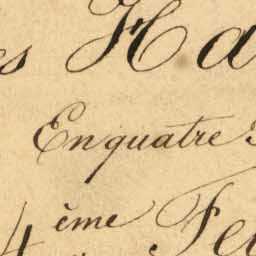 es Ha
En quatre
4ème Fe